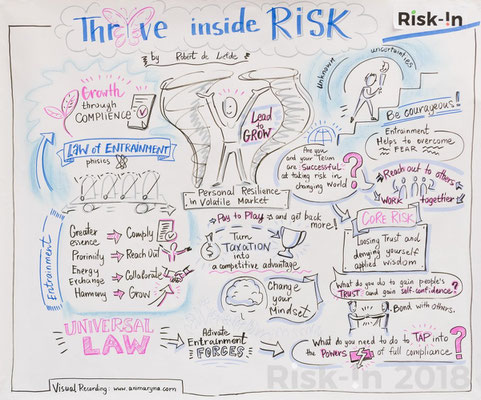 Thrive inside RISK
Risk-!n
by Robert de Liefde
Growth
through
COMPLIENCE
LAW of ENTRAINMENT
phisics
Greater
essence
Comply
Proximity
Reach Out
Energy
Exchange
Collaborate
Harmony
Grow
Entrainment
UNIVERSAL
LAW
Lead
to
GROW
Personal Resilience
in Volatile Market
Pay to Play and get back
more!
Turn
TAXATION
into
a competitive advantage
Change
your
Mindset
Activate
Entrainment
FORCES
unknown
uncertainties
Be courageous!
Entrainment
Helps to overcome
FEAR
Are you
and your Team
are SUCCESSFUL
at taking risk in
changing world
?
Reach out to others
WORK together
CORE RISK
Loosing Trust and
denying yourself
applied wisdom
What do you do to gain people's
TRUST and gain self-confidence?
Bond with others.
What do you need to do to TAP into
the Powers of full compliance
?
Visual Recording: www.annamaryna.com
Risk-!n 2018